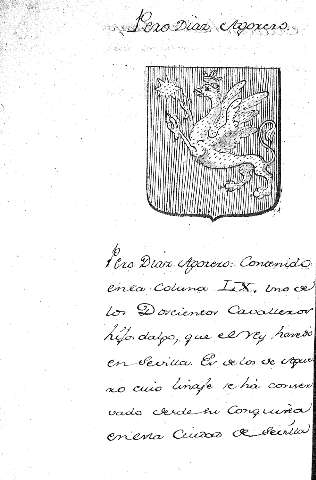 Pero Diaz Agorero.
Pero Diaz Agorero: Contenido
en la Coluna LIX. uno de
los Doscientos Cavalleros
hijosdalgo, que el Rey heredó
en Sevilla. Es de los de Aguero
cuio linaje se há conser
vado desde su Conquista
en esta Ciudad de Sevilla